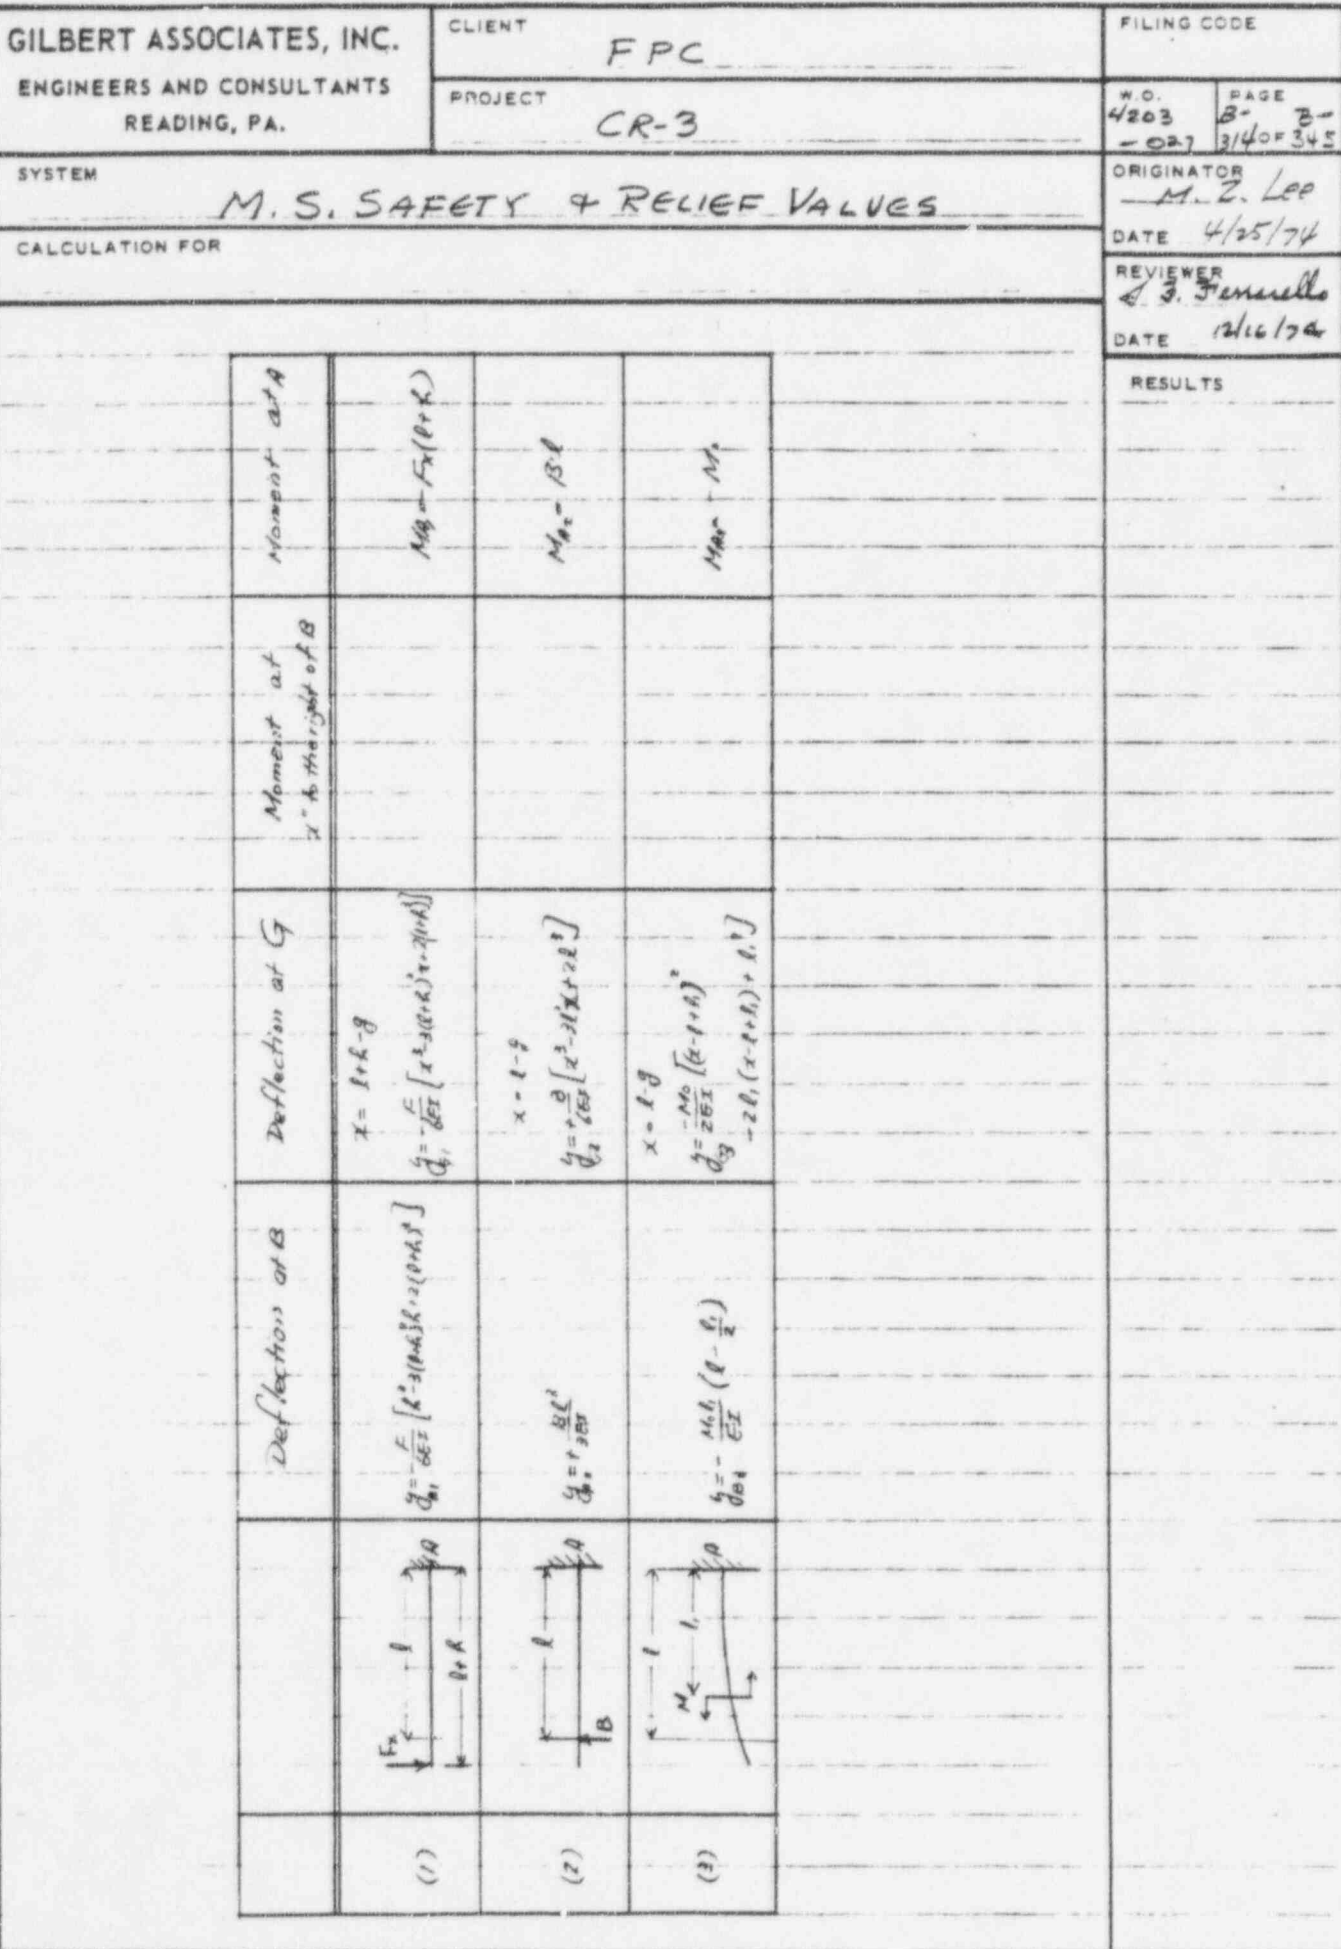 GILBERT ASSOCIATES, INC.
ENGINEERS AND CONSULTANTS
READING, PA.
CLIENT
FPC
PROJECT
CR-3
FILING CODE
W.O.
4203
-027
PAGE
B- B-
314 OF 345
SYSTEM
M. S. SAFETY & RELIEF VALVES
ORIGINATOR
M. Z. Lee
DATE 4/25/74
CALCULATION FOR
REVIEWER
DATE
RESULTS
Deflection at B
Deflection at G
Moment at
x" to the right of B
Moment at A
(1)
Fx
l
l+h
A
y_B1 = -F/6EI [h³-3(l+h)²h+2(l+h)³]
x = l+h-g
y_G1 = -F/6EI [x³-3(l+h)²x+2(l+h)³]
Fx(l+h)
(2)
l
B
A
y_B2 = + Bl³/3EI
x = l-g
y_G2 = + B/6EI [x³-3l²x+2l³]
M_A2 = Bl
(3)
l
l₁
M
A
y_B3 = - M₀l₁/EI (l - l₁/2)
x = l-g
y_G3 = -M₀/2EI [(x-l+l₁)²
-2l₁(x-l+l₁)+l₁²]